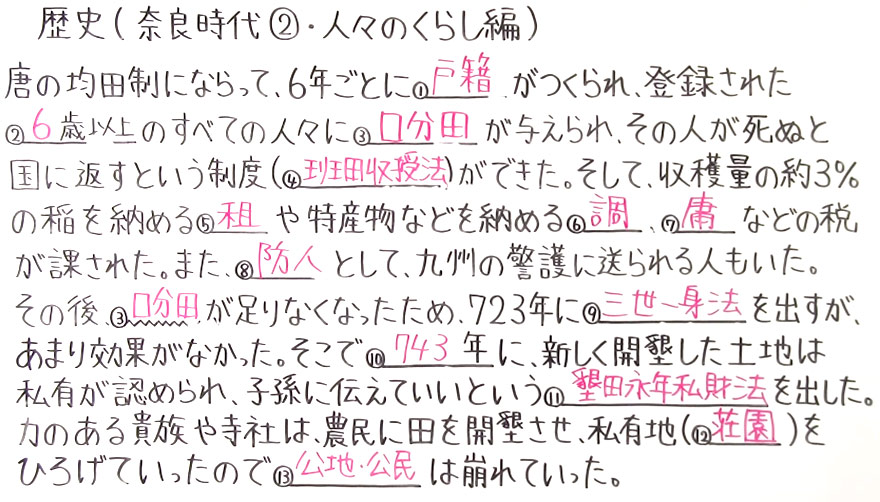 歴史(奈良時代②・人々のくらし編)
唐の均田制にならって、6年ごとに①戸籍がつくられ、登録された
②6歳以上のすべての人々に③口分田が与えられ、その人が死ぬと
国に返すという制度(④班田収授法)ができた。そして、収穫量の約3%
の稲を納める⑤租や特産物などを納める⑥調、⑦庸などの税
が課された。また、⑧防人として、九州の警護に送られる人もいた。
その後、③口分田が足りなくなったため、723年に⑨三世一身法を出すが、
あまり効果がなかった。そこで⑩743年に、新しく開墾した土地は
私有が認められ、子孫に伝えていいという⑪墾田永年私財法を出した。
力のある貴族や寺社は、農民に田を開墾させ、私有地(⑫荘園)を
ひろげていったので⑬公地・公民は崩れていった。